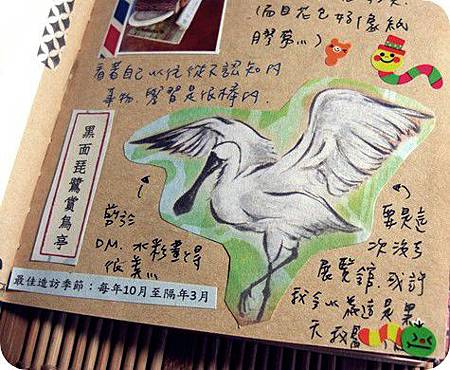 (而且花色好像紙
膠帶!!!)
看著自己以往從不認知的
事物,學習是很棒的.
黑面琵鷺賞鳥亭
剪於
DM.水彩畫得
很美!!!
要是這
次沒有
展覽館.或許
我會以為這是黑
天鵝
最佳造訪季節:每年10月至隔年3月